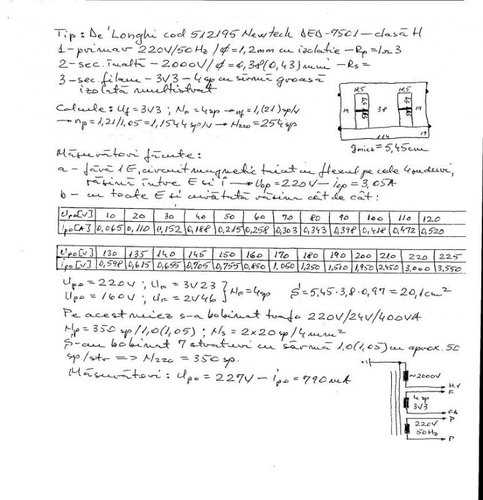 Tip: De'Longhi cod 512195 Newteck DED-7501 – clasă H
1-primar 220V/50Hz / Ø=1,2mm cu izolatie – Rp=1Ω3
2-sec. înaltă – 2000V / Ø=0,38(0,43)mm – Rs=
3-sec. filam – 3V3 – 4sp cu sârmă groasă
izolată multistrat
Calcule: Uf=3V3; Nn=4sp → nf=1,(21)sp/v
→ np=1,21/1,05=1,1544sp/v → N220=254sp
19,5 19,5
19 38 19
114 19
gmiez=5,45cm
Măsurători făcute:
a – fără 1E, circuit magnetic tăiat cu flexul pe cele 4 suduri,
rășină între E și I → Upo=220V – ipo=3,05A
b – cu toate E și curățată rășina cât de cât:
Upo[V] 10 20 30 40 50 60 70 80 90 100 110 120
ipo[A] 0,065 0,110 0,152 0,188 0,215 0,258 0,303 0,343 0,398 0,418 0,472 0,520
Upo[V] 130 135 140 145 150 160 170 180 190 200 210 220 225
ipo[V] 0,598 0,615 0,655 0,705 0,755 0,850 1,050 1,250 1,510 1,950 2,450 3,000 3,550
Upo=220V; Un=3V23
Upo=160V; Un=2V46 } Nn=4sp S=5,45·3,8·0,97=20,1cm²
Pe acest miez s-a bobinat trafo 220V/24V/400VA
Np=350sp/1,0(1,05); Ns=2×20sp/4mm²
S-au bobinat 7 straturi cu sârmă 1,0(1,05) cu aprox. 50
sp/str => N220=350sp.
Măsurători: Upo=227V – ipo=790mA
~2000V
H.V
F
4sp
3V3
FA
P
220V
50Hz
P